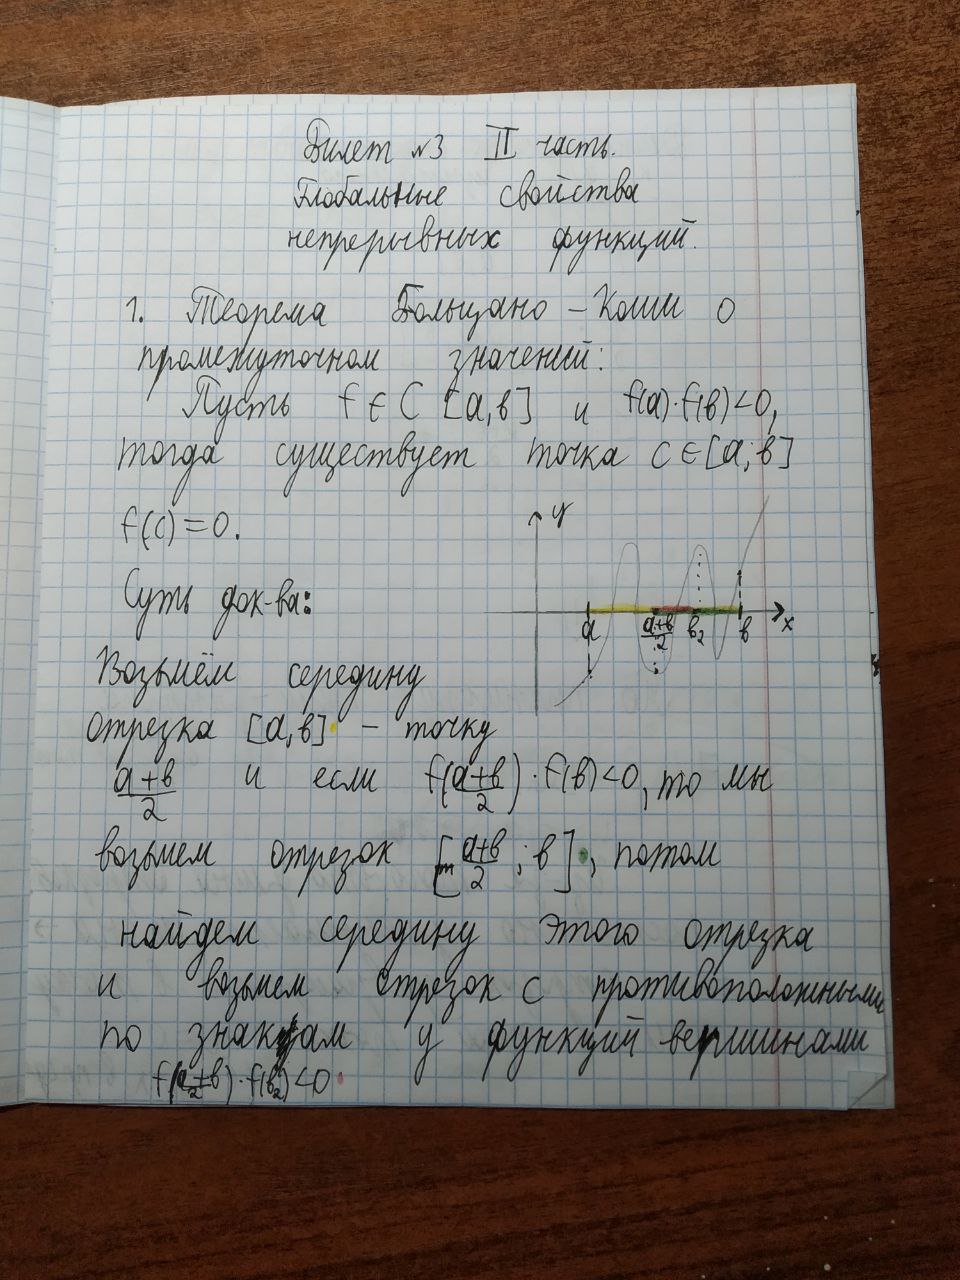 Билет №3 II часть.
Глобальные свойства
непрерывных функций.
1. Теорема Больцано – Коши о
промежуточном значений:
Пусть f ∈ C [a,в] и f(a)·f(в)<0,
тогда существует точка c∈[a;в]
f(c)=0.
y
x
a
a+в/2
в₂
в
Суть док-ва:
Возьмём середину
отрезка [a,в] – точку
a+в/2 и если f(a+в/2)·f(в)<0, то мы
возьмем отрезок [a+в/2; в], потом
найдем середину этого отрезка
и возьмем отрезок с противоположными
по знакам у функций вершинами
f(a+в/2)·f(в₂)<0